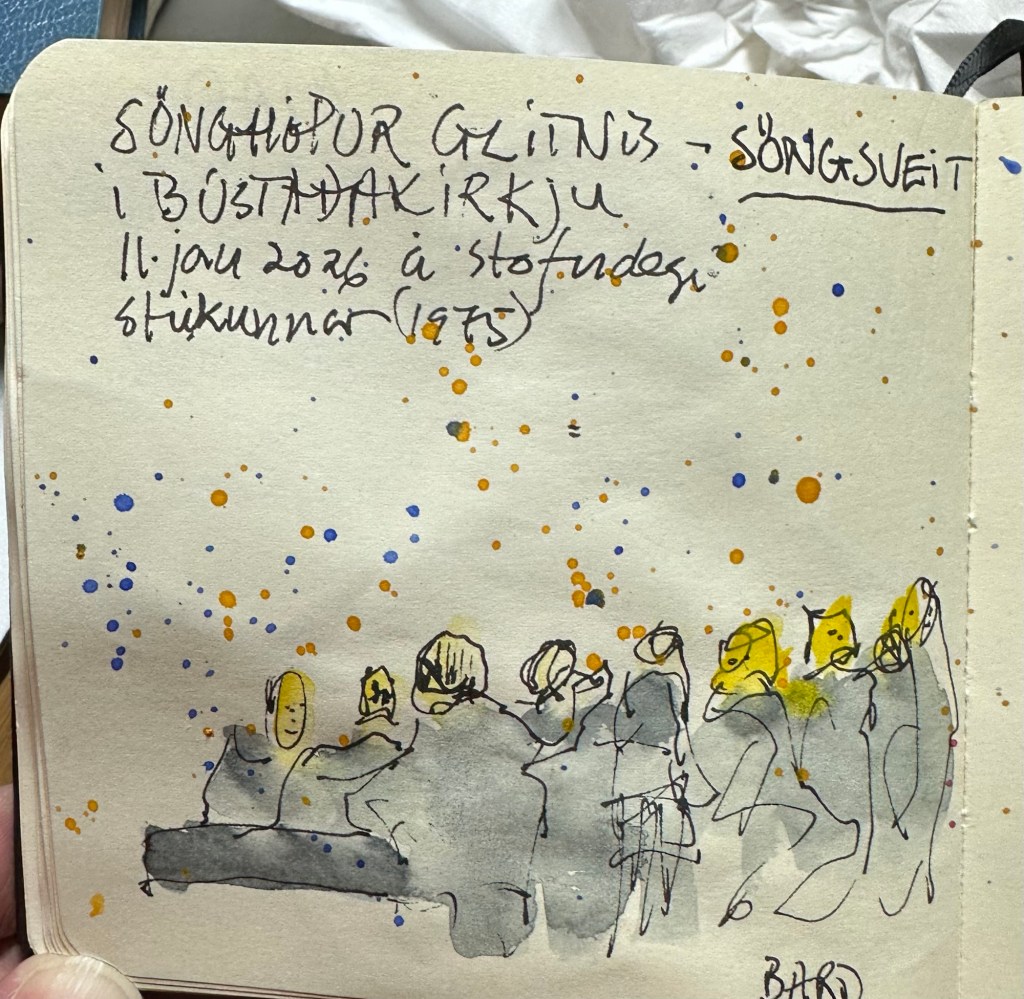 SÖNGHÓPUR GLITNIS - SÖNGSVEIT
Í BÚSTAÐAKIRKJU
11. jan 2026 á stofndegi
stúkunnar (1975)
BARD